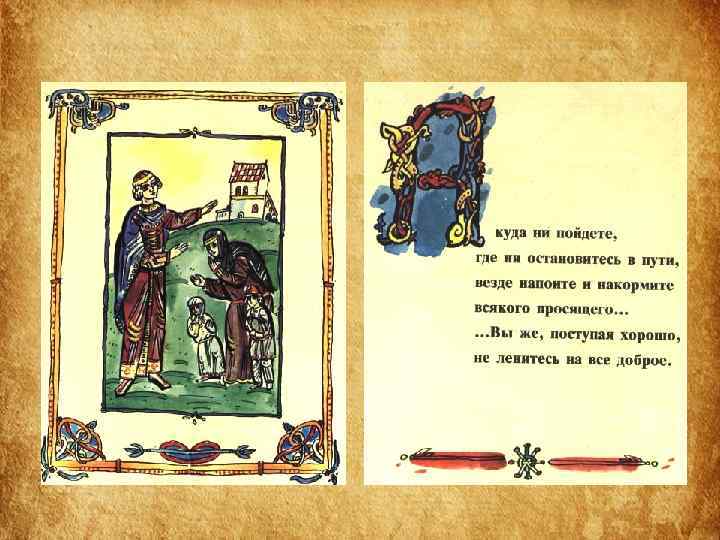 А куда ни пойдете,
где ни остановитесь в пути,
везде напоите и накормите
всякого просящего...
...Вы же, поступая хорошо,
не ленитесь на все доброе.